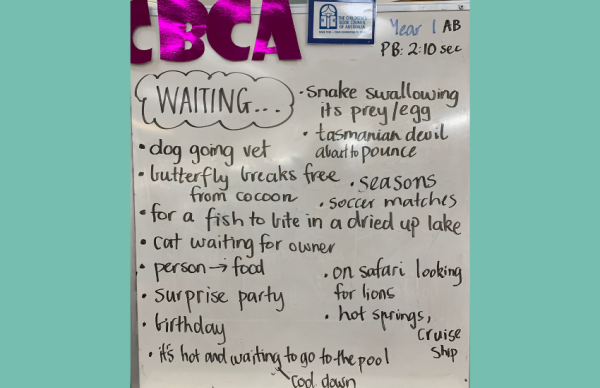 CBCA
THE CHILDREN'S
BOOK COUNCIL
OF AUSTRALIA
Year 1 AB
PB: 2:10 sec
WAITING...
• snake swallowing
its prey/egg
• tasmanian devil
about to pounce
• dog going vet
• butterfly breaks free
from cocoon
• seasons
• soccer matches
• for a fish to bite in a dried up lake
• cat waiting for owner
• person → food
• on safari looking
for lions
• surprise party
• hot springs,
cruise
ship
• birthday
• it's hot and waiting to go to the pool
cool down